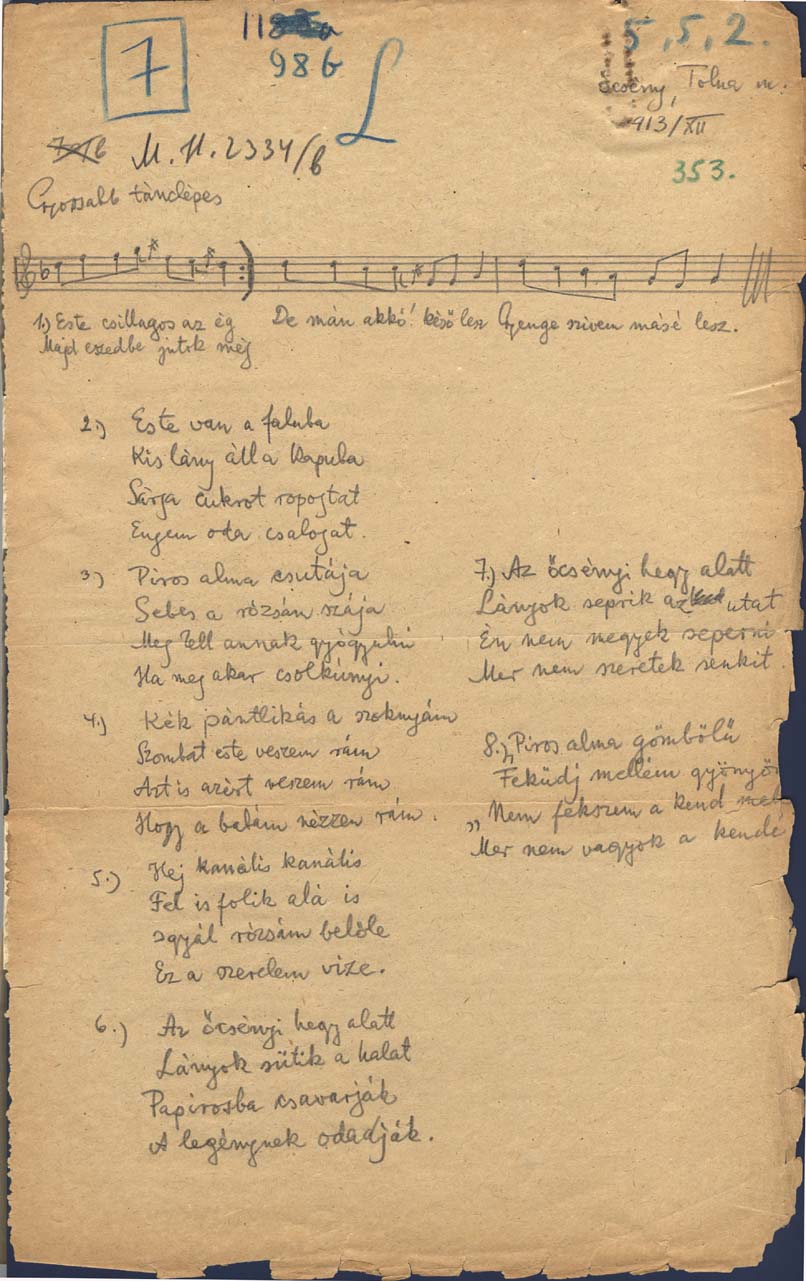 7
98 b
5, 5, 2.
Őcsény, Tolna m.
913/XII
M. H. 2334/b
353.
Gyorsabb tánclépés
1.) Este csillagos az ég De mán akkó! késő lesz Gyenge szivem másé lesz.
Majd eszedbe jutok még
2.) Este van a faluba
Kis lány áll a kapuba
Sárga cukrot ropogtat
Engem oda csalogat.
3.) Piros alma csutája
Sebes a rózsám szája
Meg kell annak gyógyulni
Ha meg akar csolkúnyi.
4.) Kék pántlikás a szoknyám
Szombat este veszem rám
Azt is azért veszem rám
Hogy a babám nézzen rám.
5.) Hej kanális kanális
Fel is folik alá is
Igyál rózsám belőle
Ez a szerelem vize.
6.) Az őcsényi hegy alatt
Lányok sütik a halat
Papirosba csavarják
A legénynek odadják.
7.) Az őcsényi hegy alatt
Lányok seprik az utat
Én nem megyek seperni
Mer nem szeretek senkit.
8.) „Piros alma gömbölű
Feküdj mellém gyönyö
„Nem fekszem a kend mel
Mer nem vagyok a kendé